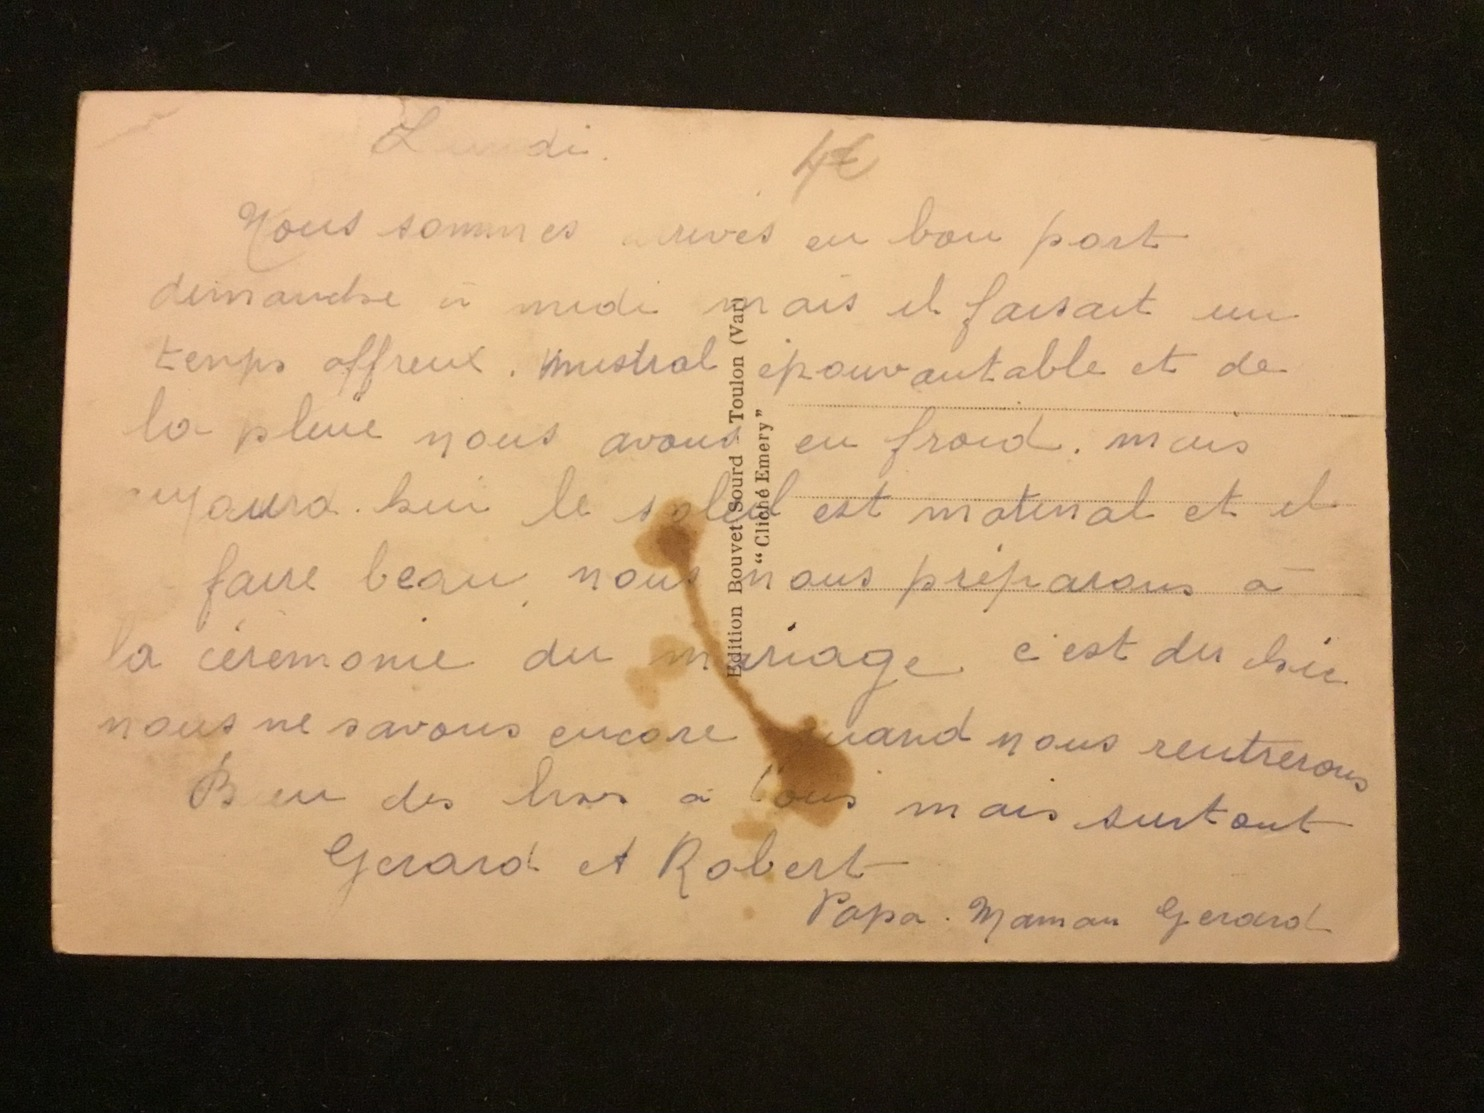 Lundi.
4€
Nous sommes arrivés en bon port
dimanche à midi mais il faisait un
temps affreux. mistral épouvantable et de
la pluie nous avons eu froid. mais
aujourd. hui le soleil est matinal et il
faire beau, nous nous préparons à
la cérémonie du mariage c'est du chic
nous ne savons encore quand nous rentrerons
Bien des bises à tous mais surtout
Gerard et Robert
Papa. Maman Gerard
Edition Bouvet-Sourd - Toulon (Var)
"Cliché Emery"